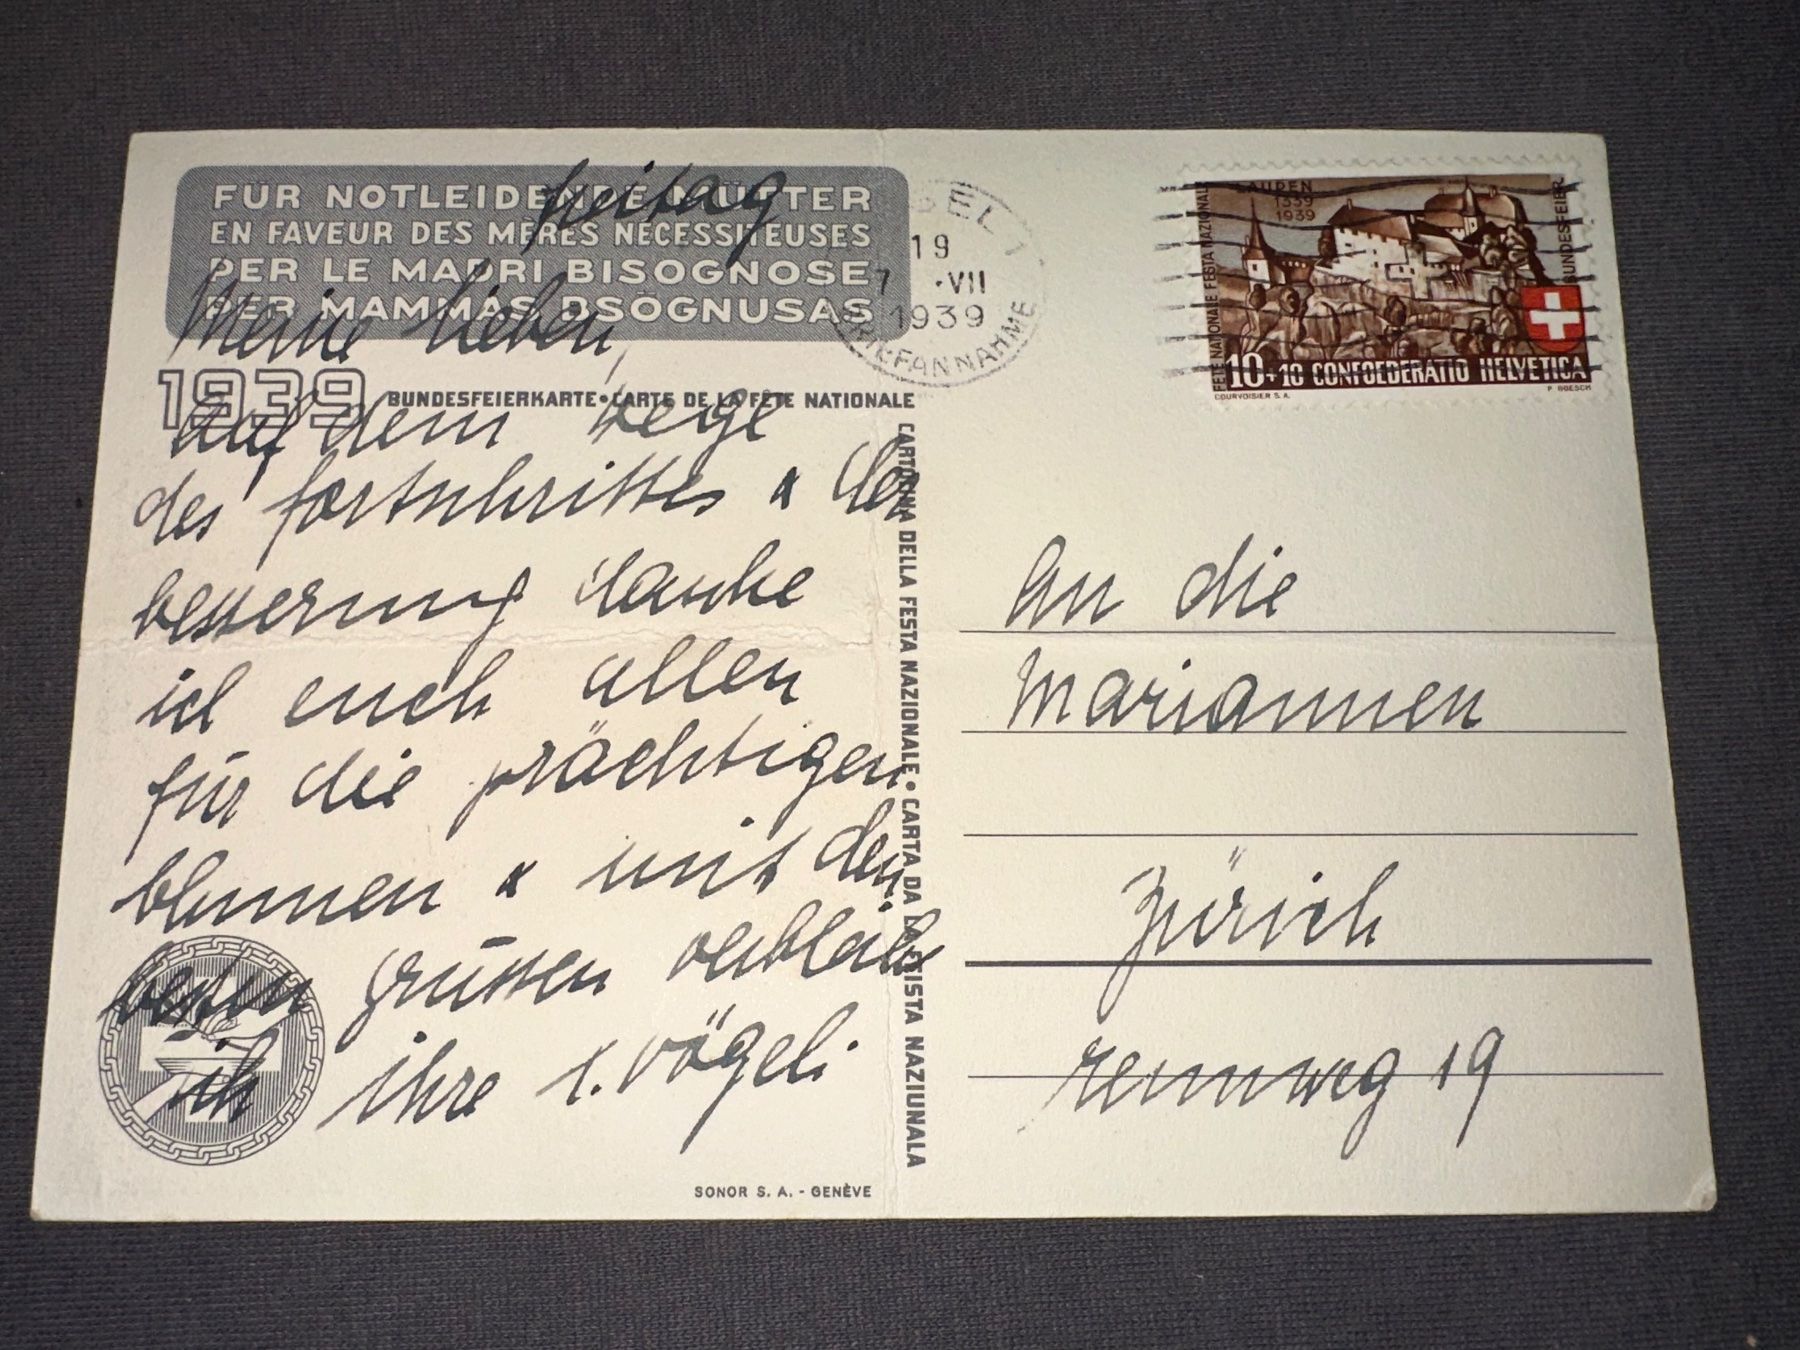 FÜR NOTLEIDENDE MÜTTER
EN FAVEUR DES MÈRES NÉCESSITEUSES
PER LE MADRI BISOGNOSE
PER MAMMAS BSÖGNUSAS
1939 BUNDESFEIERKARTE • CARTE DE LA FÊTE NATIONALE
CARTOLINA DELLA FESTA NAZIONALE • CARTA DA LA FISTA NAZIUNALA
freitag
Meine lieben,
auf dem wege
des fortschrittes & der
besserung danke
ich euch allen
für die prächtigen
blumen & mit den
besten grüssen verbleibe
ich ihre l. vögeli.
SONOR S. A. - GENÈVE
BASEL 1
19
7 ·VII
1939
BRIEFANNAHME
LAUPEN
1339
1939
FÊTE NATIONALE FESTA NAZIONALE
BUNDESFEIER
10+10 CONFOEDERATIO HELVETICA
COURVOISIER S. A.
P BOESCH
An die
Mariannen
Zürich
rennweg 19